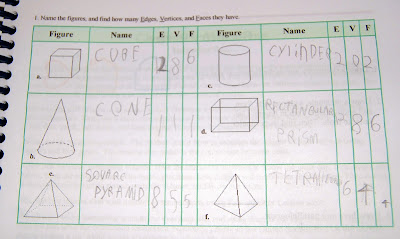 1. Name the figures, and find how many Edges, Vertices, and Faces they have.
Figure Name E V F Figure Name E V F
a. CUBE 2 8 6
c. CYLiNDER 2 0 2
b. CONE 1 1 1
d. RECTANGULAR
PRiSM 8 6
e. SQUARE
PYRAMID 8 5 5
f. 6 4 4